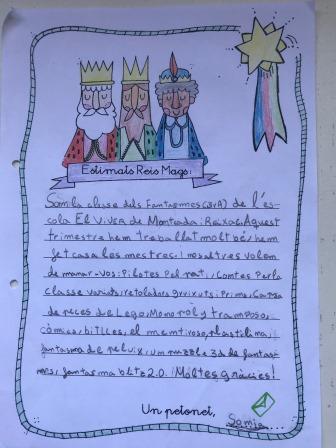 Estimats Reis Mags:
Som la clase dels Fantasmes (3rA) de l'es-
cola El Viver de Montcada i Reixac. Aquest
trimestre hem treballat molt bé; hem
fet casa les mestres. I nosaltres volem
demanar-vos: Pilotes pel pati, Contes per la
classe variats, retoladors gruixuts i prims, Capsa
de peces de Lego, Monopoly tramposo,
còmics, bitlles, el mentiroso, plastilina,
fantasma de peluix, un puzzle 3d de fantas-
mes, fantasma blitz 2.0. Moltes gràcies!
Un petonet,
Samia